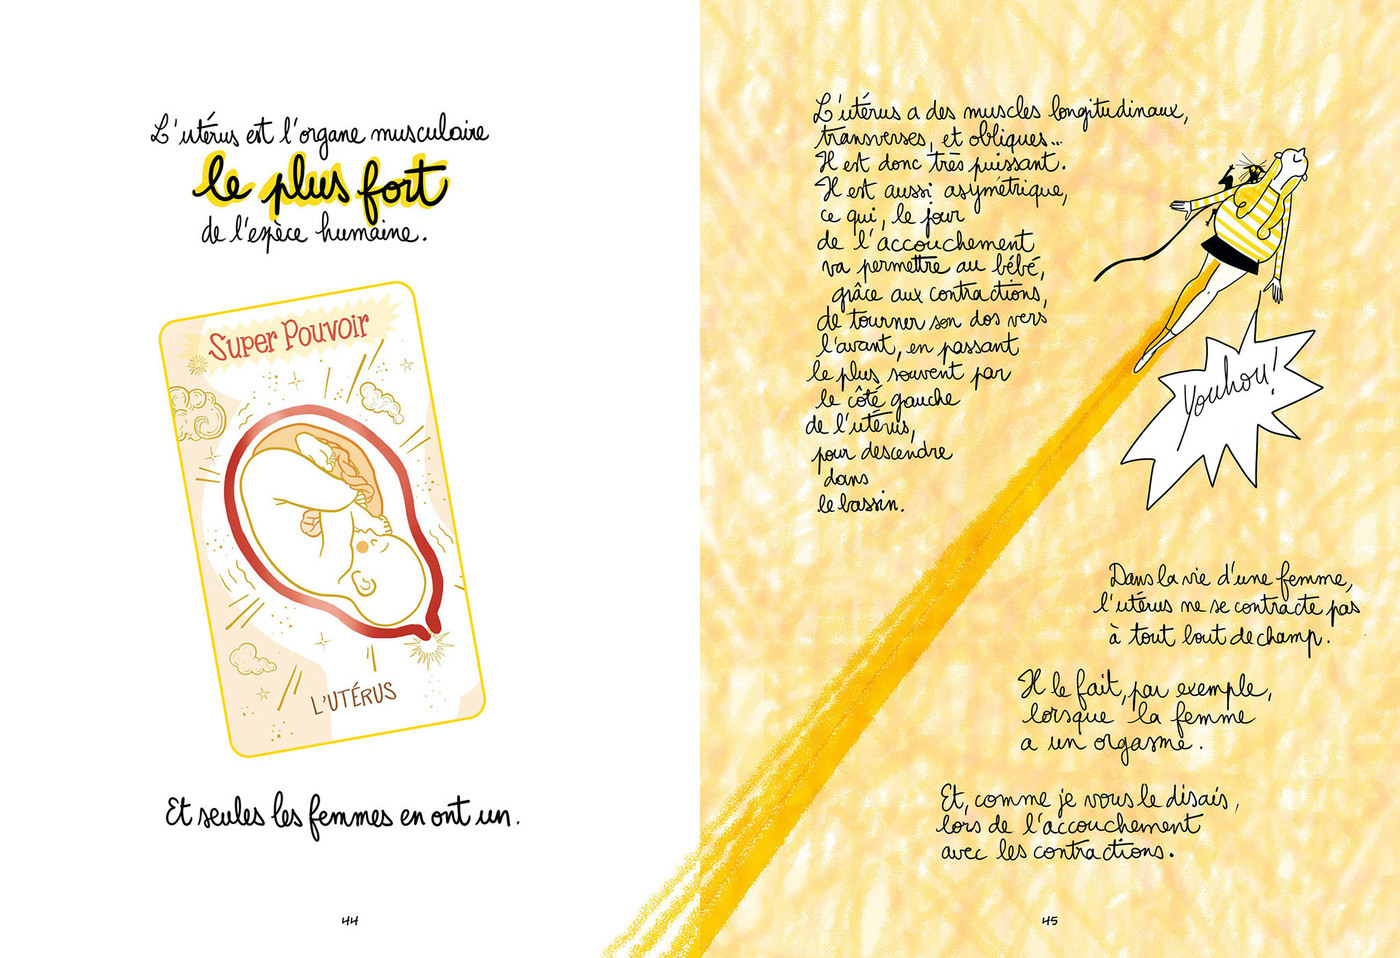 L'utérus est l'organe musculaire
le plus fort
de l'espèce humaine.
Super Pouvoir
L'UTÉRUS
Et seules les femmes en ont un.
44
L'utérus a des muscles longitudinaux,
transverses, et obliques...
Il est donc très puissant.
Il est aussi asymétrique,
ce qui, le jour
de l'accouchement
va permettre au bébé,
grâce aux contractions,
de tourner son dos vers
l'avant, en passant
le plus souvent par
le côté gauche
de l'utérus,
pour descendre
dans
le bassin.
Youhou!
Dans la vie d'une femme,
l'utérus ne se contracte pas
à tout bout de champ.
Il le fait, par exemple,
lorsque la femme
a un orgasme.
Et, comme je vous le disais,
lors de l'accouchement
avec les contractions.
45